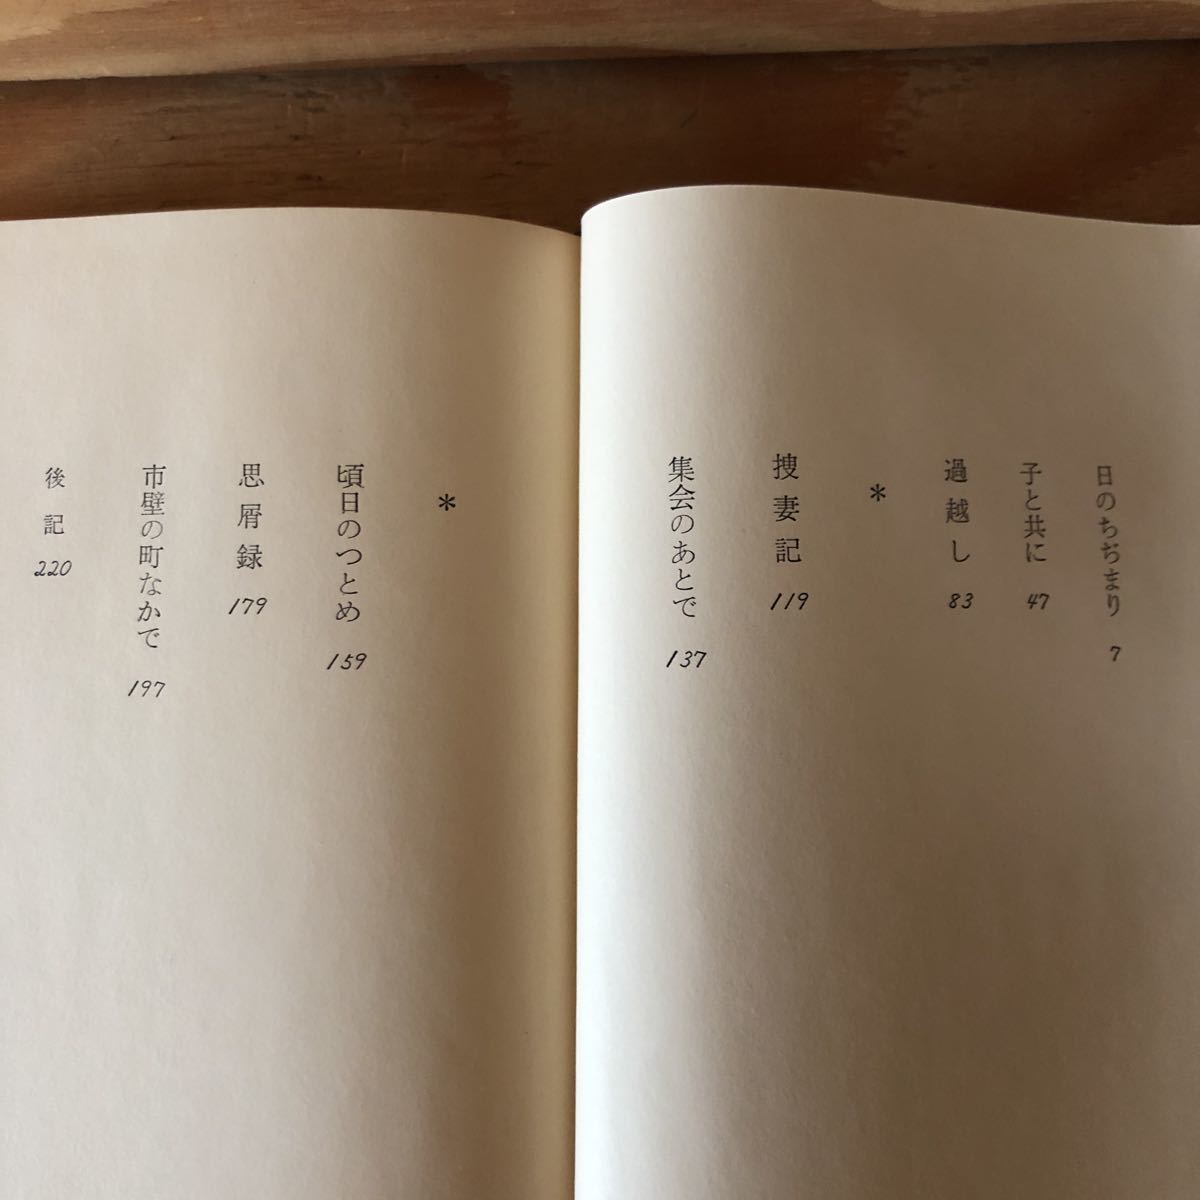 日のちぢまり 7
子と共に 47
過越し 83
＊
捜妻記 119
集会のあとで 137
＊
頃日のつとめ 159
思屑録 179
市壁の町なかで 197
後記 220